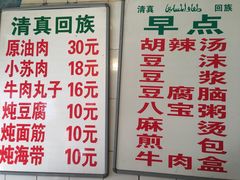 清真回族
原油肉 30元
小苏肉 18元
牛肉丸子 16元
炖豆腐 10元
炖面筋 10元
炖海带 10元
清真 回族
早点
胡辣汤
豆沫
豆浆
豆腐脑
八宝粥
麻烫
煎包
牛肉盒